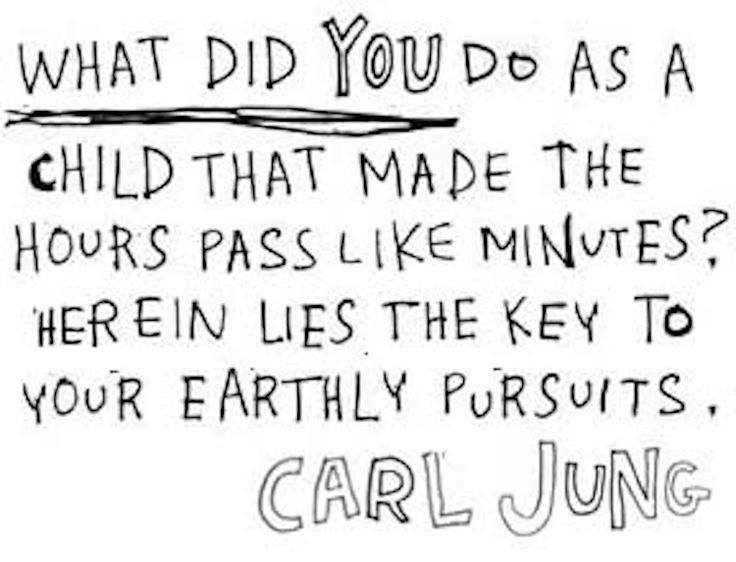 WHAT DID YOU DO AS A
CHILD THAT MADE THE
HOURS PASS LIKE MINUTES?
HEREIN LIES THE KEY TO
YOUR EARTHLY PURSUITS.
CARL JUNG